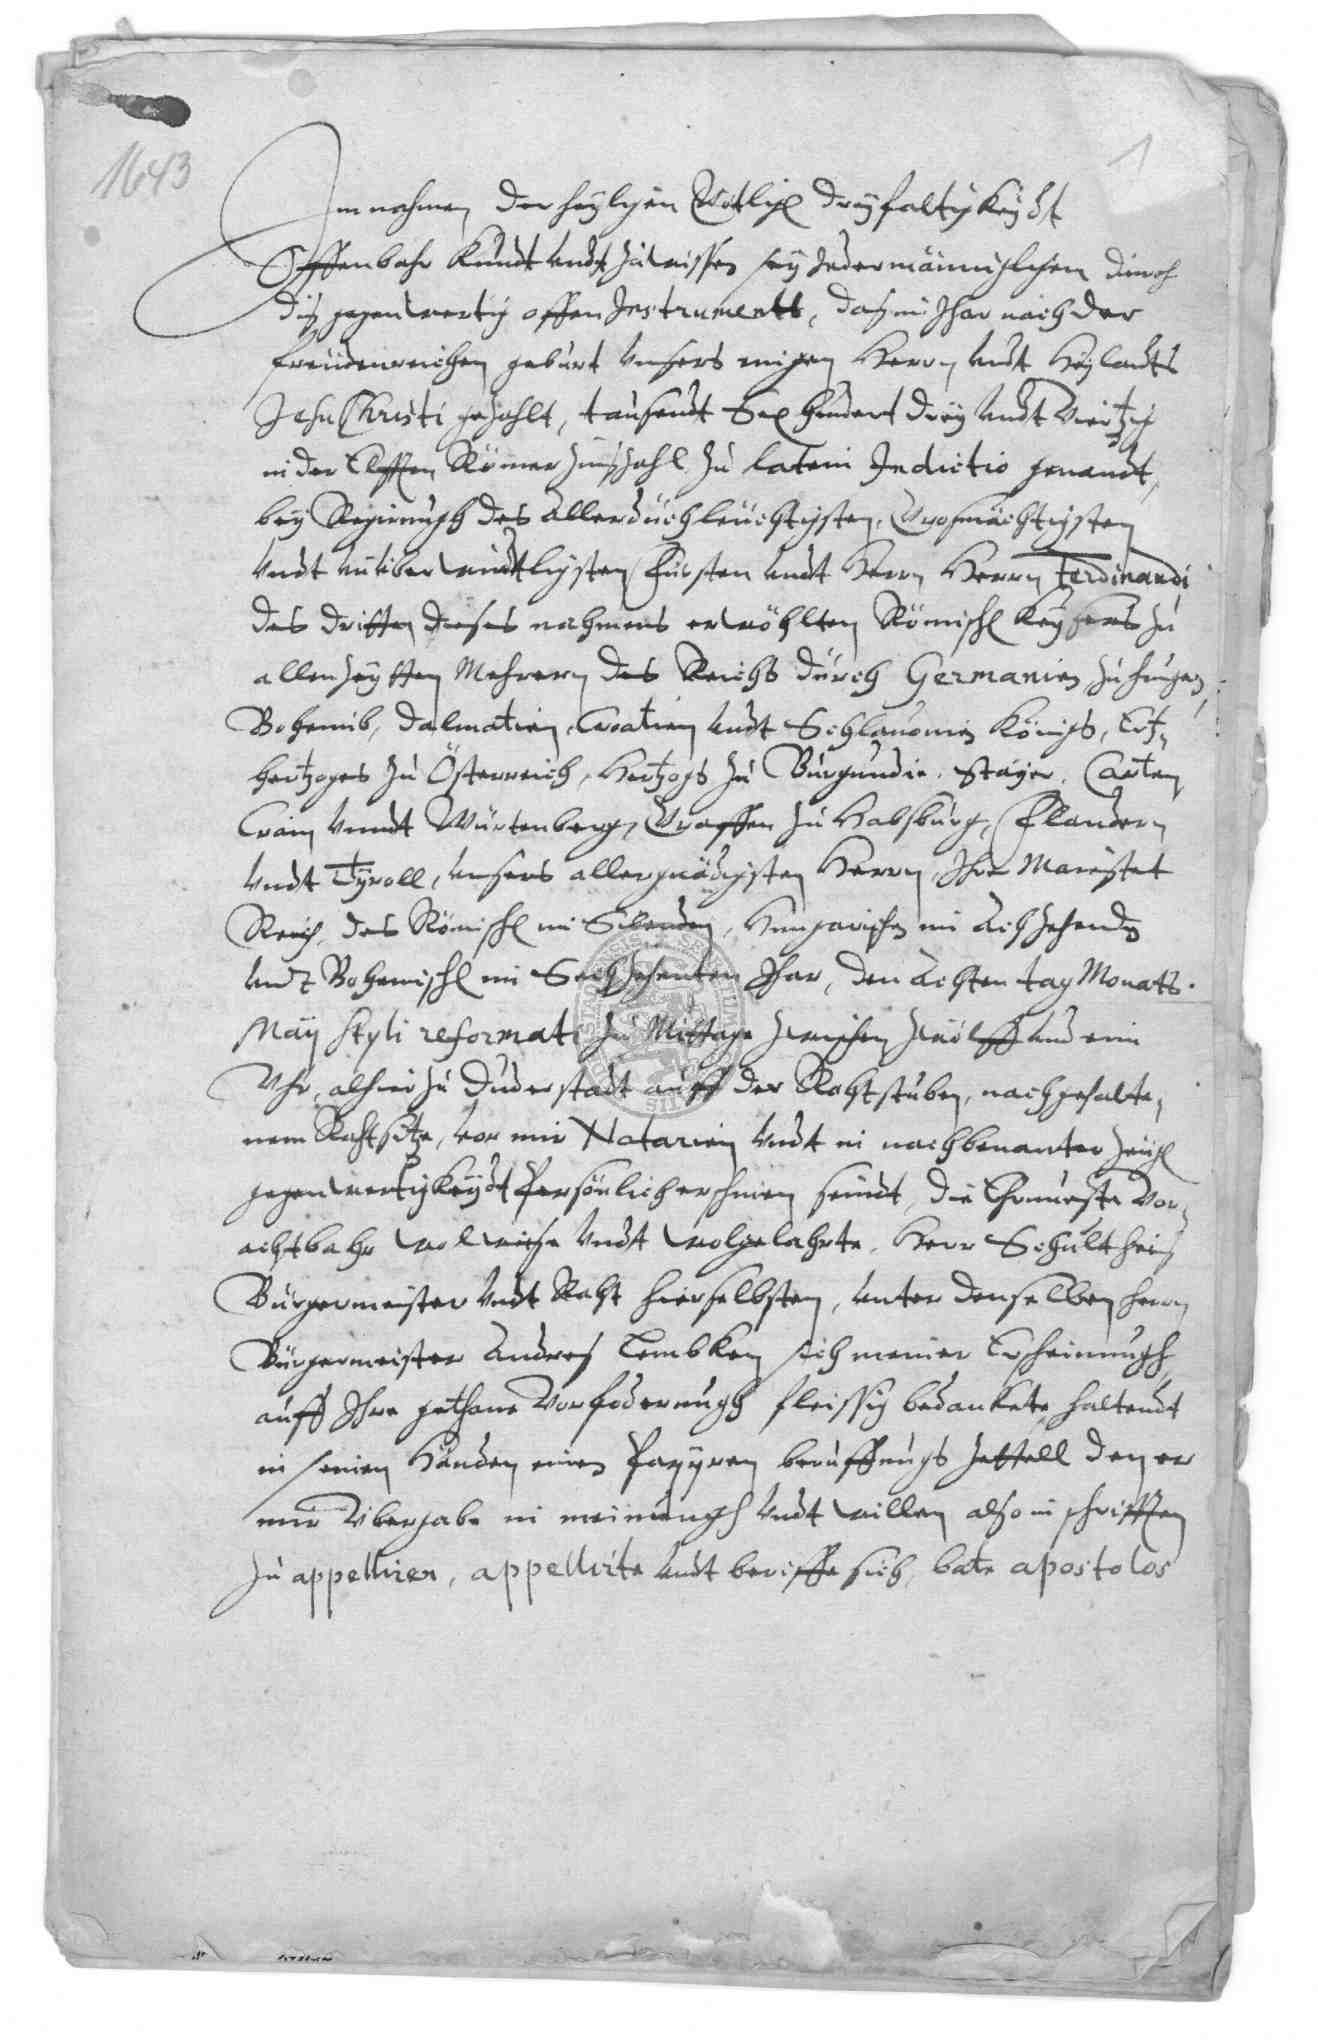 1643
1
Im nahmen der heyligen Götlich dreyfaltigkeydt
Offenbahr Kundt undt zu wissen sey Jedermänniglichen durch
diß gegenwertig offen Instrumentt, daß im Jhar nach der
freudenreichen geburt unsers einigen Herrn undt Heylandts
Jesu Christi gezahlt, tausendt Sex hundert drey undt viertzich
in der Elfften Römer Zinßzahl zu latein Indictio genandt,
bey Regierungh des Allerduchleuchtigsten, Grosmächtigsten
undt unüberwindtligsten Fürsten undt Herrn Herrn Ferdinandi
des dritten dieses nahmens erwöhlten Römisch Keysers zu
allen Zeytten Mehrern des Reichs durch Germanien zu Hungern
Bohemib, Dalmatien, Croatien undt Schlauonien Königs, Ertz
hertzoges zu Österreich, Hertzogs zu Burgundie. Stayer. Carten
Crain unndt Würtenberg, Graffen zu Habsburg, Flandern
undt Tyroll, unsers allergnädigsten Herrn, Ihr Maiestet
Reich, des Römisch im Siebenden, Hungarischen im Achzehenden
undt Bohemisch im Sechzehenten Jhar, den Achten tag Monats
Maij styli reformati zu Mittage zwischen zwölff und ein
Uhr, alhier zu Duderstadt auff der Rahtstuben, nach gehalte,
nem Rahtsitze, vor mir Notarien undt in nachbenanter Zeugen
gegenwertigkeydt Persönlich erschienen seindt, die Ehrnueste Vor,
achtbahr wolweise undt wolgelahrte. Herr Schultheis
Bürgermeister undt Raht hierselbsten, unter denselben herrn
Bürgermeister Andres Lembken sich meiner Erscheinungh
auff Ihre gethane Vorfoderungh fleissig bedankete haltendt
in seinen Händen einen Papyren beruffungs zettell den er
mir Übergabe in meinungh undt willen also in schrifften
zu appelliren, appellirte undt berieffe sich, bate apostolos